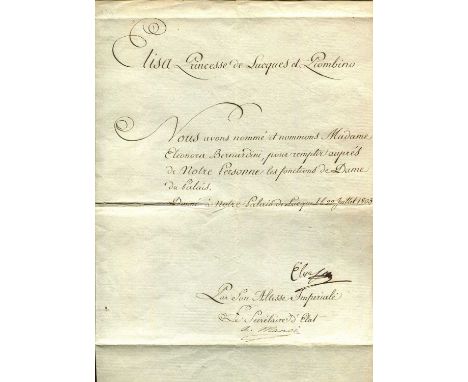 Elisa Princesse de Lucques et Piombino
Nous avons nommé et nommons Madame
Eleonora Bernardini pour remplir auprès
de Notre Personne les fonctions de Dame
du Palais.
Donné à Notre Palais de Lucques le 22 Juillet
Elisa
Par Son Altesse Impériale
Le Secrétaire d'Etat